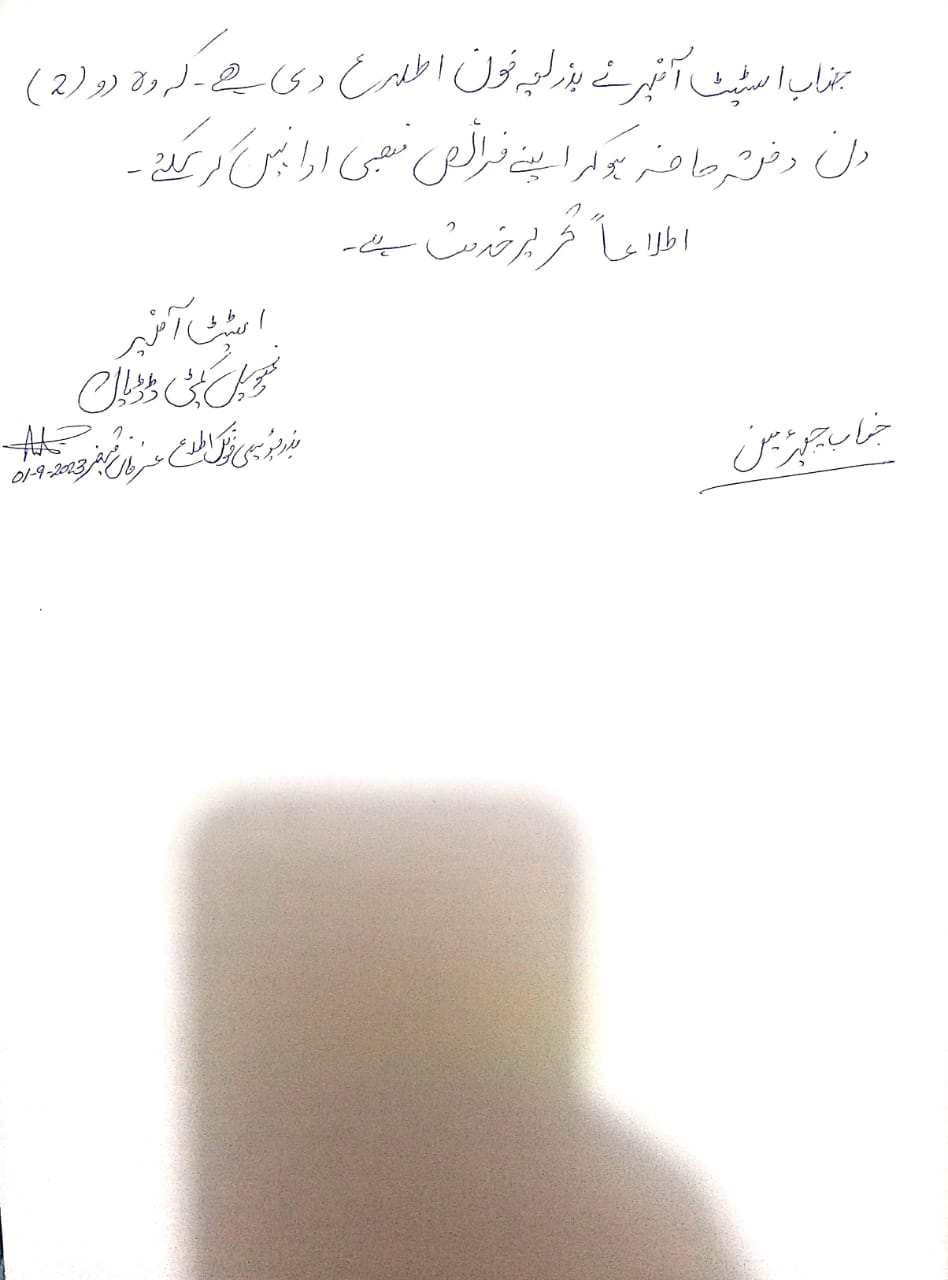 جناب اسٹیٹ آفیسر نے بذریعہ فون اطلاع دی ہے۔ کہ وہ دو (2)
دن دفتر حاضر ہوکر اپنے فرائض منصبی ادا نہیں کر سکتے۔
اطلاعاً تحریر خدمت ہے۔
اسٹیٹ آفیسر
میونسپل کمیٹی ڈڈیال
بذریعہ ٹیلی فونک اطلاع عرفان
01-9-2023
جناب چیئرمین